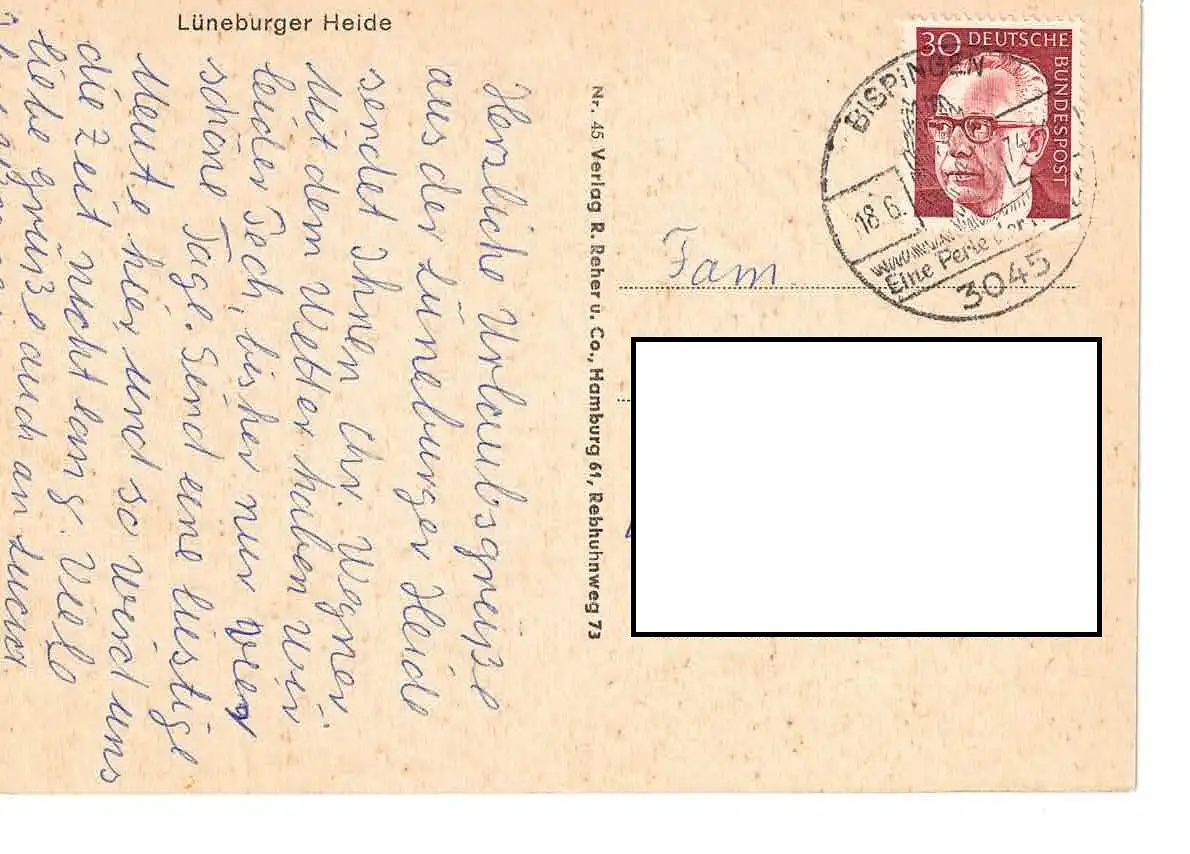 Lüneburger Heide
Herzliche Urlaubsgrüße
aus der Lüneburger Heide
sendet Ihnen Chr. Wegner.
Mit dem Wetter haben wir
leider Pech, bisher nur vier
schöne Tage. Sind eine lustige
Meute hier und so wird uns
die Zeit nicht lang. Viele
liebe Grüße auch an Lucia
Nr. 45 Verlag R. Reher u. Co., Hamburg 61, Rebhuhnweg 73
30 DEUTSCHE
BUNDESPOST
BISPINGEN
18.6.
14
Eine Perle der
3045
Fam.